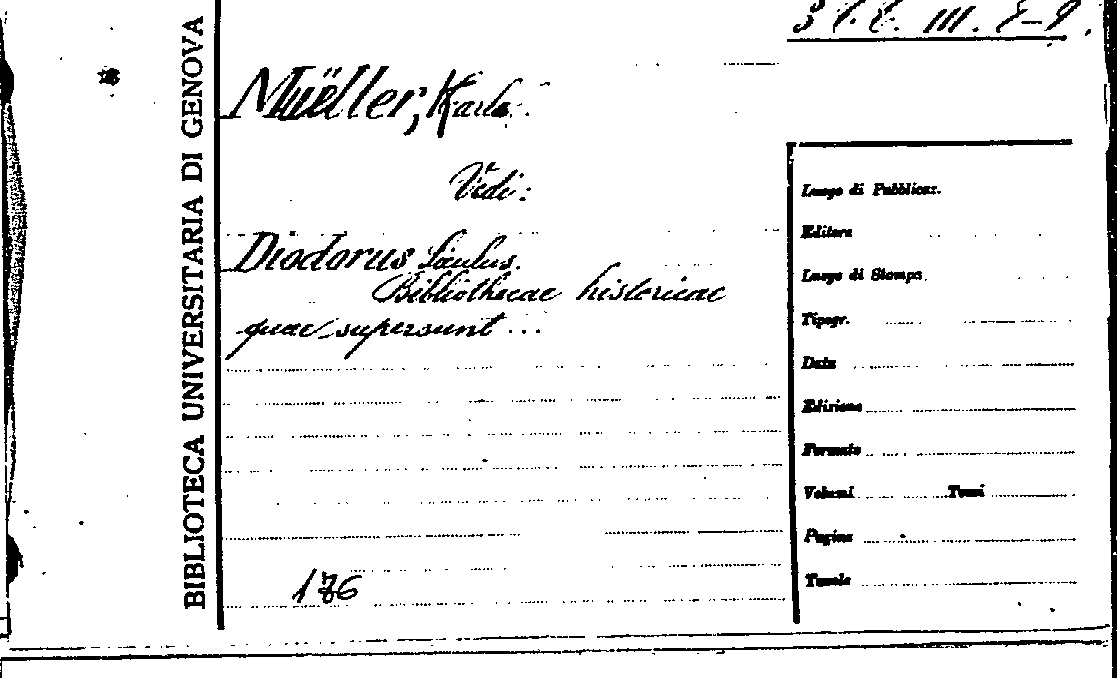 BIBLIOTECA UNIVERSITARIA DI GENOVA
Müeller, Karla.
Vedi:
Diodorus Siculus.
Bibliothecae historicae
quae supersunt ...
176
Luogo di Pubblicaz.
Editore
Luogo di Stampa
Tipogr.
Data
Edizione
Formato
Volumi Tomi
Pagine
Tavole